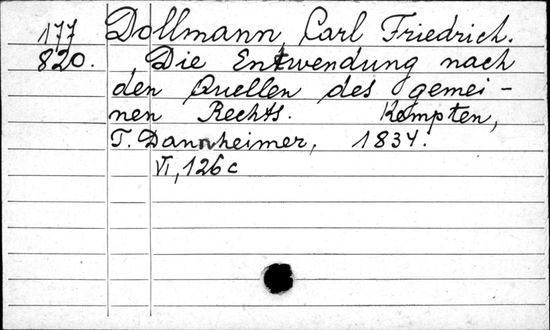 177 Dollmann, Carl Friedrich.
820. Die Entwendung nach
den Quellen des gemei-
nen Rechts. Kempten,
T. Dannheimer, 1834.
VI, 126 c